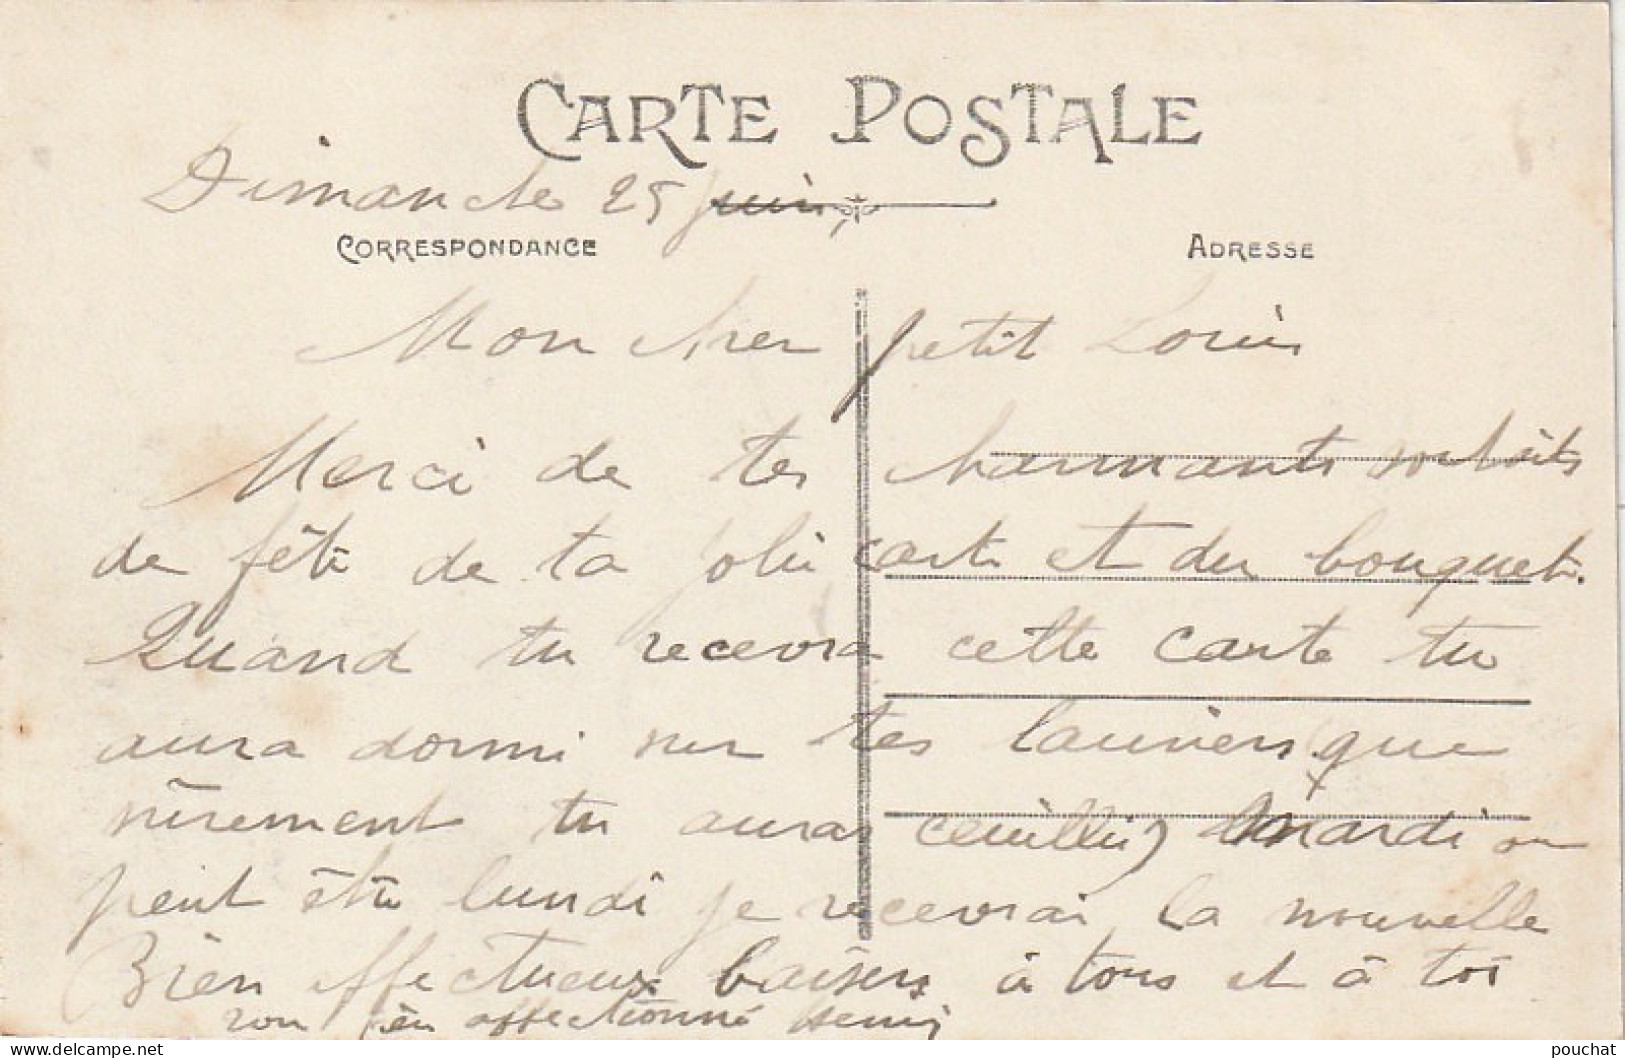 CARTE POSTALE
Dimanche 25 juin
CORRESPONDANCE
ADRESSE
Mon cher petit Louis
Merci de tes charmants souhaits
de fête de ta jolie carte et du bouquet.
Quand tu recevra cette carte tu
aura dormi sur tes lauriers que
sûrement tu auras ceuillis mardi ou
peut être lundi je recevrai la nouvelle
Bien affectueux baisers à tous et à toi
ton bien affectionné Henri
delcampe.net
pouchat